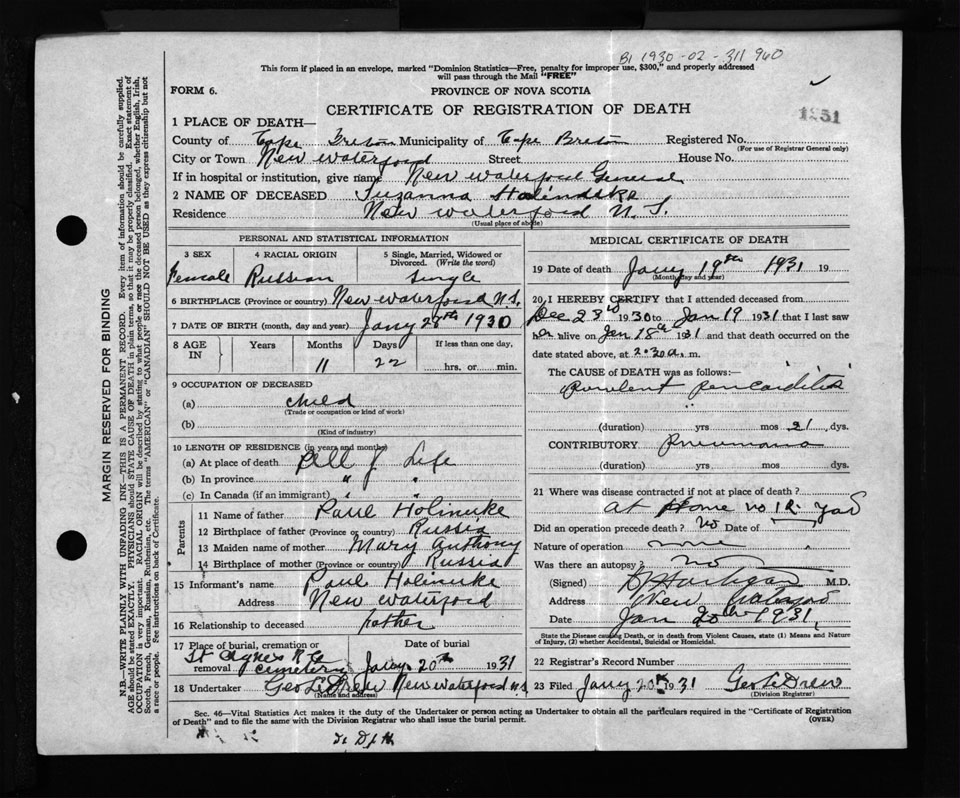 B1 1930-02-311 940
This form if placed in an envelope, marked "Dominion Statistics—Free, penalty for improper use, $300," and properly addressed
will pass through the Mail "FREE"
FORM 6.
PROVINCE OF NOVA SCOTIA
CERTIFICATE OF REGISTRATION OF DEATH
1931
1 PLACE OF DEATH—
County of Cape Breton Municipality of Cape Breton Registered No.
(For use of Registrar General only)
City or Town New Waterford Street House No.
If in hospital or institution, give name New Waterford General
2 NAME OF DECEASED Suzanna Holindske
Residence New Waterford N.S.
(Usual place of abode)
PERSONAL AND STATISTICAL INFORMATION
3 SEX 4 RACIAL ORIGIN 5 Single, Married, Widowed or Divorced. (Write the word)
Female Russian Single
6 BIRTHPLACE (Province or country) New Waterford N.S.
7 DATE OF BIRTH (month, day and year) Jany 28th 1930
8 AGE IN Years Months Days If less than one day,
11 22 hrs. or min.
9 OCCUPATION OF DECEASED
(a) child
(Trade or occupation or kind of work)
(b)
(Kind of industry)
10 LENGTH OF RESIDENCE (in years and months)
(a) At place of death All of Life
(b) In province " "
(c) In Canada (if an immigrant) " "
Parents
11 Name of father Paul Holinuke
12 Birthplace of father (Province or country) Russia
13 Maiden name of mother Mary Anthony
14 Birthplace of mother (Province or country) Russia
15 Informant's name Paul Holinuke
Address New Waterford
16 Relationship to deceased father
17 Place of burial, cremation or removal Date of burial
St Agnes R.C. cemetery Jany 20th 1931
18 Undertaker Geo LeDrew New Waterford N.S.
(Name and address)
MEDICAL CERTIFICATE OF DEATH
19 Date of death Jany 19th 1931 19
(Month, day and year)
20 I HEREBY CERTIFY that I attended deceased from
Dec 23rd 1930 to Jan 19 1931 that I last saw
her alive on Jan 18th 1931 and that death occurred on the
date stated above, at 2.30 a. m.
The CAUSE of DEATH was as follows:—
purulent pericarditis
(duration) yrs mos 21 dys.
CONTRIBUTORY Pneumonia
(duration) yrs. mos dys.
21 Where was disease contracted if not at place of death?
at Home no 12 Yard
Did an operation precede death? no Date of
Nature of operation none
Was there an autopsy? no
(Signed) M.D.
Address New Waterford
Date Jan 20th 1931
State the Disease causing Death, or in death from Violent Causes, state (1) Means and Nature
of Injury, (2) whether Accidental, Suicidal or Homicidal.
22 Registrar's Record Number
23 Filed Jany 20th 1931 Geo LeDrew
(Division Registrar)
Sec. 46—Vital Statistics Act makes it the duty of the Undertaker or person acting as Undertaker to obtain all the particulars required in the "Certificate of Registration
of Death" and to file the same with the Division Registrar who shall issue the burial permit.
(OVER)
MARGIN RESERVED FOR BINDING
N.B.—WRITE PLAINLY WITH UNFADING INK—THIS IS A PERMANENT RECORD. Every item of information should be carefully supplied.
AGE should be stated EXACTLY. PHYSICIANS should STATE CAUSE OF DEATH in plain terms, so that it may be properly classified. Exact statement of
OCCUPATION is very important. RACIAL ORIGIN will be described by stating to what people or race the deceased person belonged, whether English, Irish,
Scotch, French, German, Russian, Ruthenian, etc. The terms "AMERICAN" or "CANADIAN" SHOULD NOT BE USED as they express citizenship but not
a race or people. See instructions on back of Certificate.